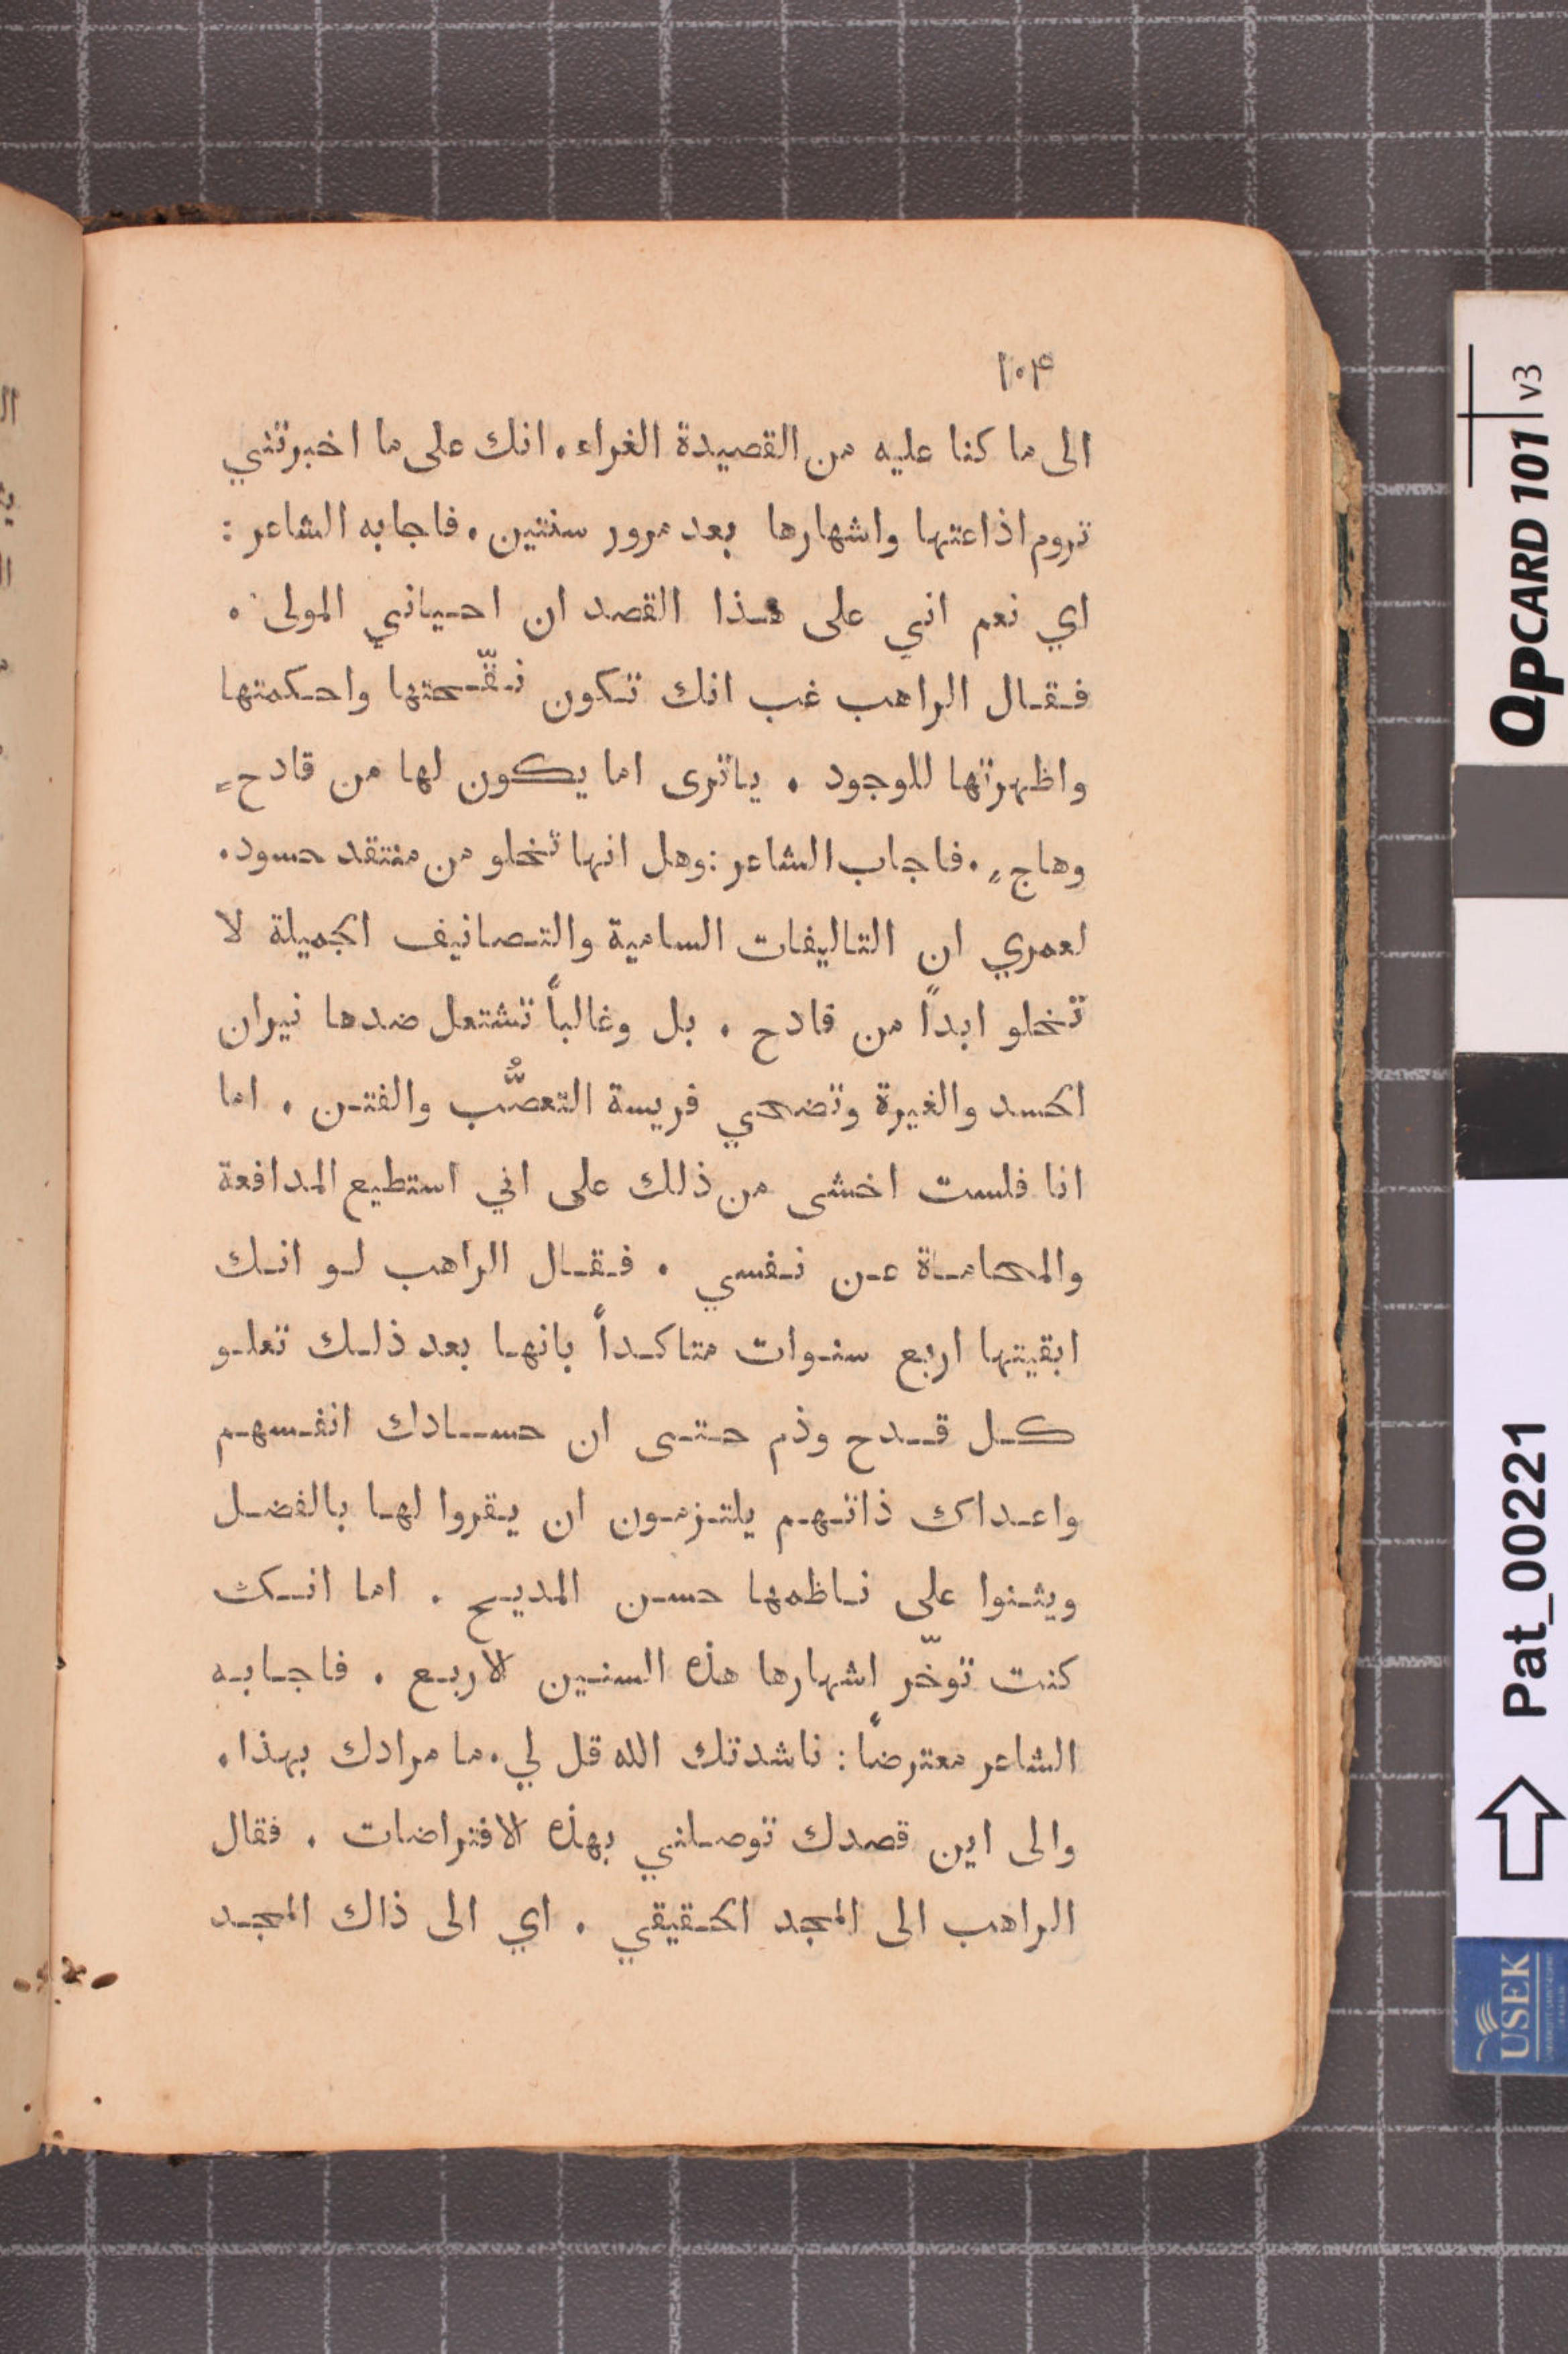 ١٠۴
الى ما كنا عليه من القصيدة الغراء. انك على ما اخبرتني
تروم اذاعتها واشهارها بعد مرور سنتين. فاجابه الشاعر :
اي نعم اني على هذا القصد ان احياني المولى.
فقال الراهب غب انك تكون نقّحتها واحكمتها
واظهرتها للوجود. ياترى اما يكون لها من قادحٍ
وهاجٍ. فاجاب الشاعر : وهل انها تخلو من منتقد حسود.
لعمري ان التاليفات السامية والتصانيف الجميلة لا
تخلو ابداً من قادح. بل وغالباً تشتعل ضدها نيران
الحسد والغيرة وتضحي فريسة التعصُّب والفتن. اما
انا فلست اخشى من ذلك على اني استطيع المدافعة
والمحاماة عن نفسي. فقال الراهب لو انك
ابقيتها اربع سنوات متاكداً بانها بعد ذلك تعلو
كل قدح وذم حتى ان حسادك انفسهم
واعداك ذاتهم يلتزمون ان يقروا لها بالفضل
ويثنوا على ناظمها حسن المديح. اما انك
كنت توخّر اشهارها هذه السنين الاربع. فاجابه
الشاعر معترضاً : ناشدتك الله قل لي. ما مرادك بهذا.
والى اين قصدك توصلني بهذه الافتراضات. فقال
الراهب الى المجد الحقيقي. اي الى ذاك المجد
QPCARD 101 v3
Pat_00221
USEK